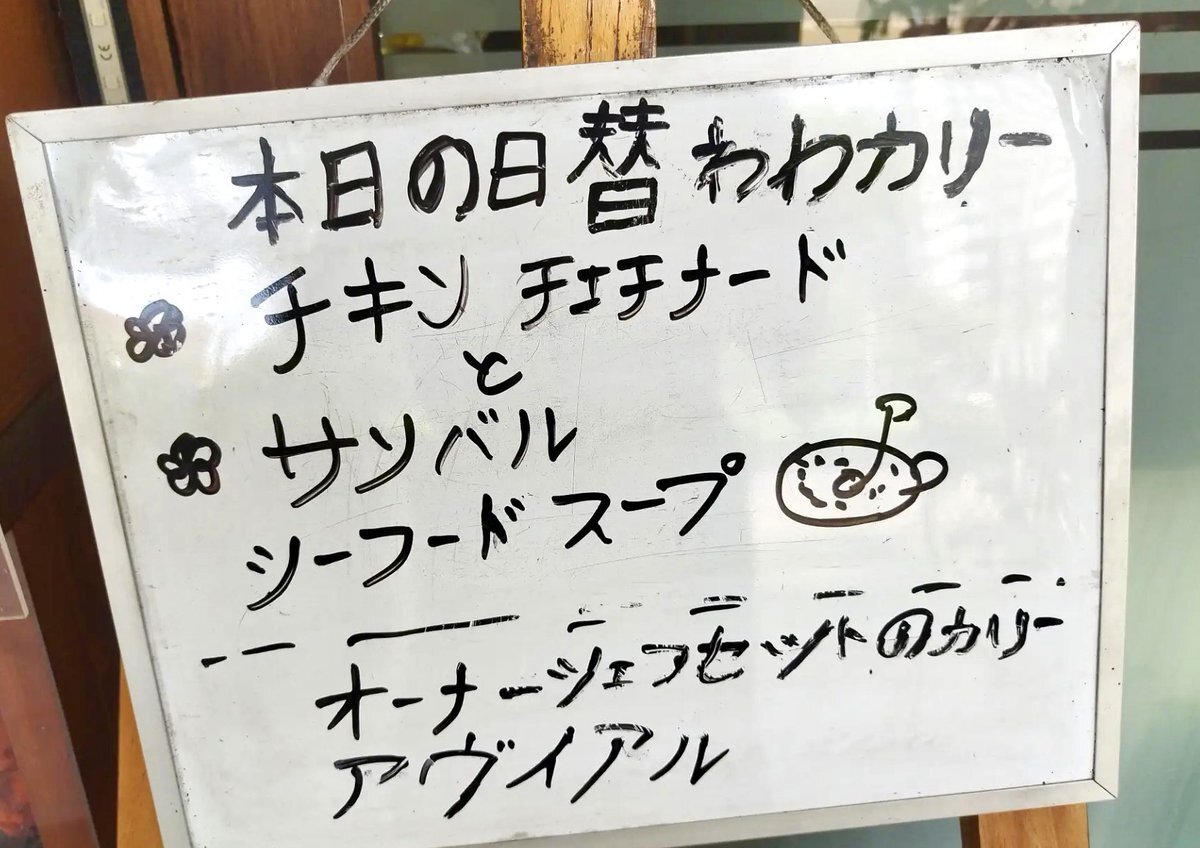 本日の日替わわカリー
チキン チェチナード
と
サンバル
シーフードスープ
オーナーシェフセットのカリー
アヴィアル